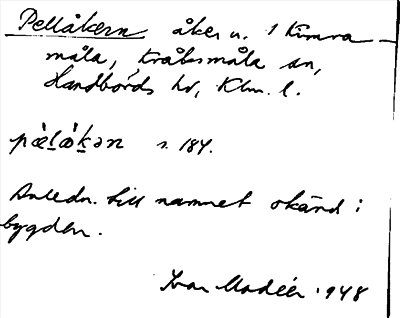 Pellåkern åker u. 1 Kimra-
måla, Kråksmåla sn,
Handbörds hd, Klm. l.
pæ̀l̠å̀k̠ən s. 184.
Anledn. till namnet okänd i
bygden.
Ivar Modéer 1948